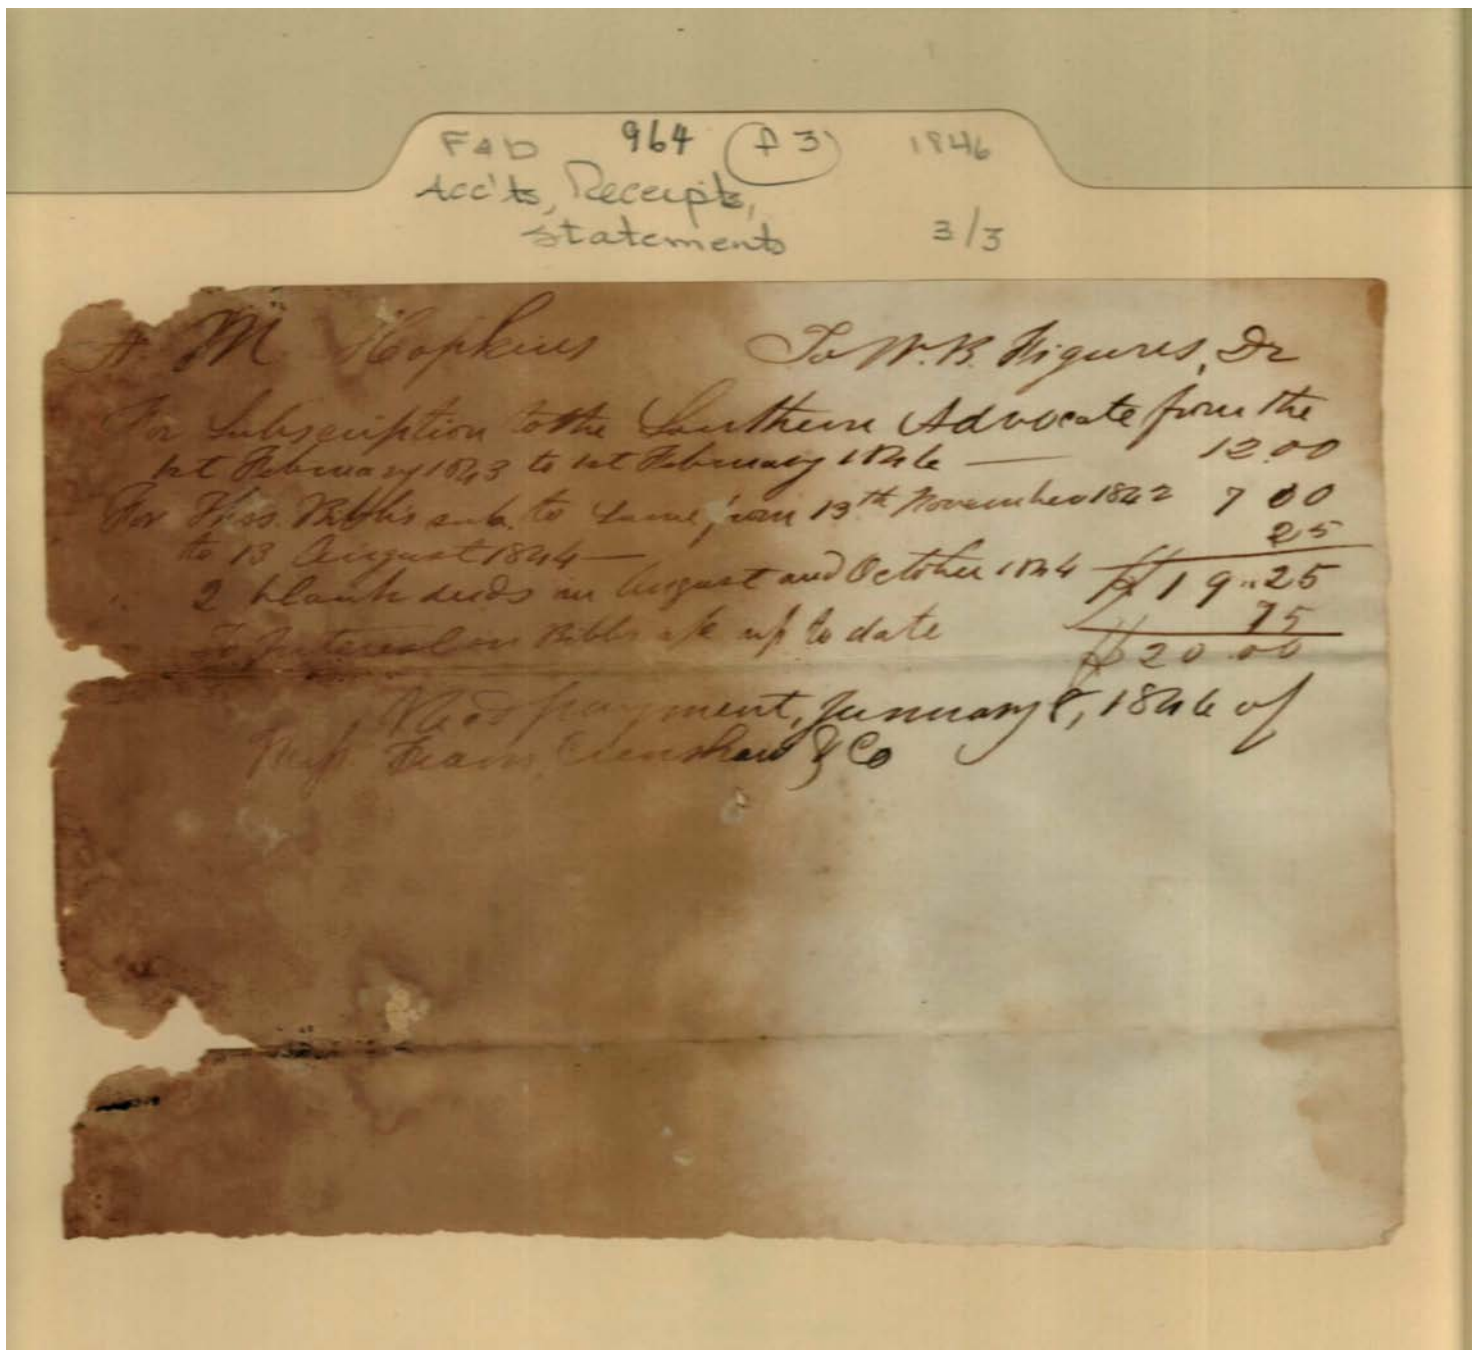 FAD 964 f3 1846
Acc'ts, Receipts,
Statements 3/3
A. M Hopkins To W. B. Figures, Dr
For Subscription to the Southern Advocate from the
1st February 1843 to 1st February 1846 — 12.00
For Thos. Bibb's sub. to same from 13th November 1842 7 00
to 13 August 1844 — 25
2 blank deeds in August and October 1844 $19..25
To Interest on Bibbs a/c up to date 75
$20.00
Rec'd payment, January 8, 1846 of
Crenshaw & Co